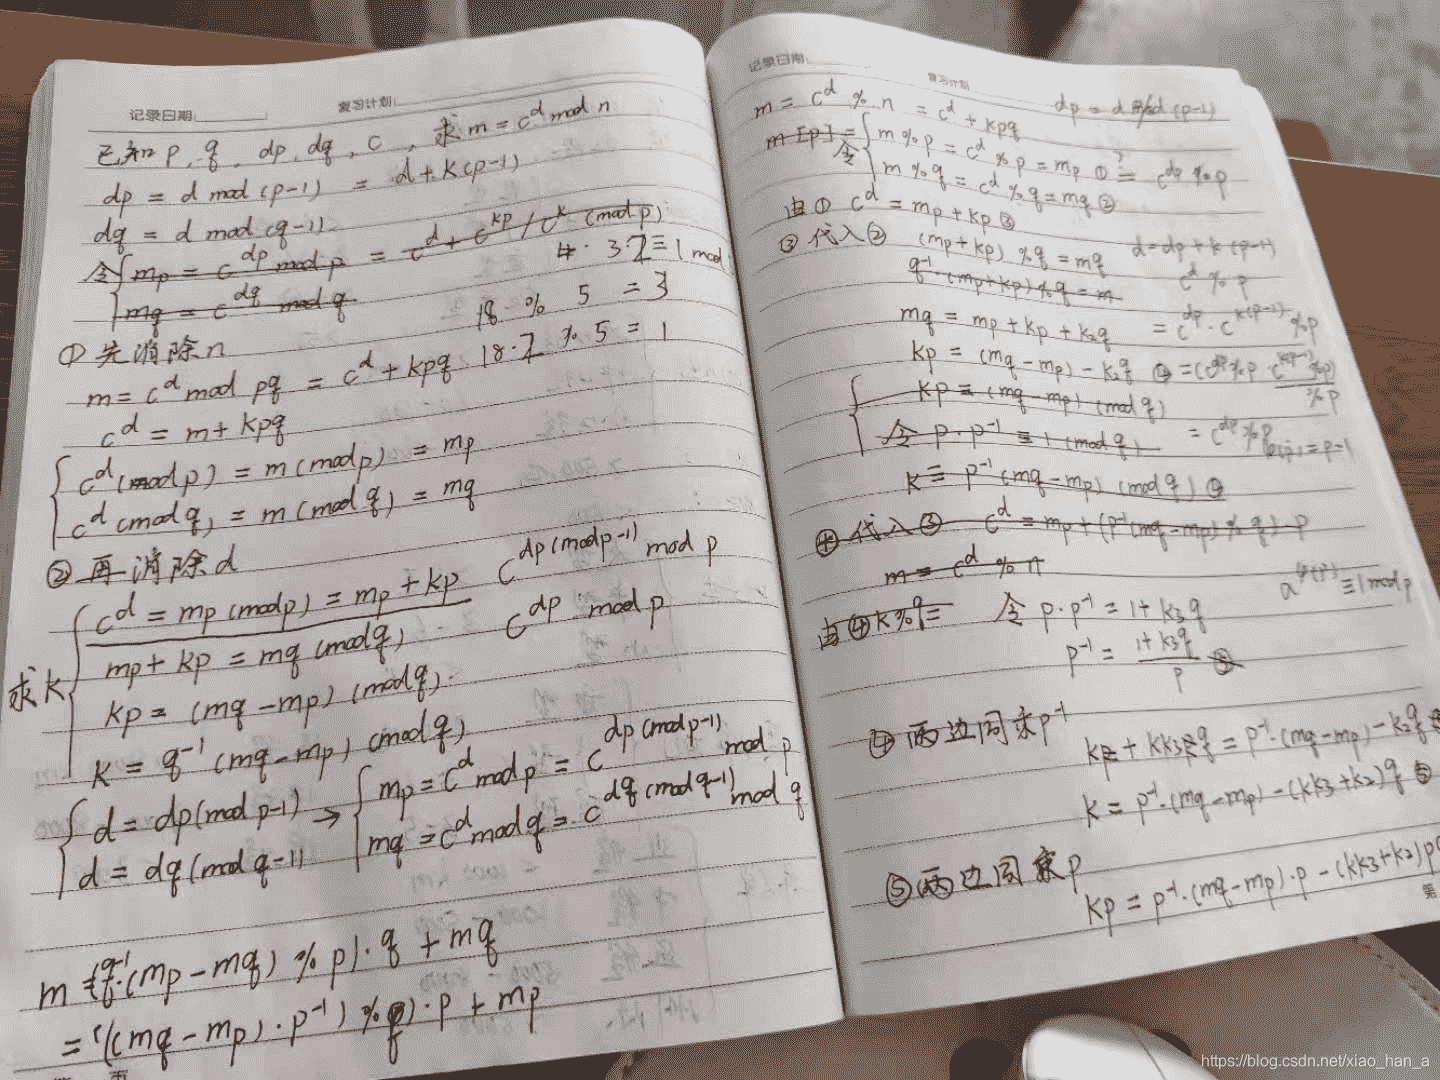 记录日期: 复习计划:
已知 p, q, dp, dq, c, 求 m = c^d mod n
dp = d mod (p-1) = d + k(p-1)
dq = d mod (q-1)
令 { mp = c^dp mod p = c^d + c^kp / c^k (mod p)
mq = c^dq mod q
4 · 3 2 ≡ 1 mod
18 % 5 = 3
① 先消除n
18·2 % 5 = 1
m = c^d mod pq = c^d + kpq
c^d = m + kpq
{ c^d (mod p) = m (mod p) = mp
c^d (mod q) = m (mod q) = mq
② 再消除d
c^dp(mod p-1) mod p
求k { c^d = mp (mod p) = mp + kp
c^dp mod p
mp + kp = mq (mod q)
kp = (mq - mp) (mod q)
k = q^-1 (mq - mp) (mod q)
{ d = dp (mod p-1)
d = dq (mod q-1)
→ { mp = c^d mod p = c^dp(mod p-1) mod p
mq = c^d mod q = c^dq(mod q-1) mod q
m = (q^-1·(mp - mq) % p)·q + mq
= ((mq - mp)·p^-1) % q)·p + mp
记录日期: 复习计划
m = c^d % n = c^d + kpq
dp = d mod (p-1)
m [p] =
令 { m % p = c^d % p = mp ① ?= c^dp % p
m % q = c^d % q = mq ②
由① c^d = mp + kp ③
③代入② (mp + kp) % q = mq
d = dp + k(p-1)
q^-1·(mp + kp) % q = m
c^d % p
mq = mp + kp + k₂q
= c^dp · c^k(p-1) % p
kp = (mq - mp) - k₂q ④
= (c^dp % p · c^k(p-1) % p) % p
kp = (mq - mp) (mod q)
令 p·p^-1 ≡ 1 (mod q)
= c^dp % p
φ(p) = p-1
k ≡ p^-1 (mq - mp) (mod q) ④
④代入③ c^d = mp + (p^-1(mq - mp) % q)·p
m = c^d % n
a^φ(p) ≡ 1 mod p
由④ k % q =
令 p·p^-1 = 1 + k₃q
p^-1 = (1 + k₃q) / p ⑤
④两边同乘p^-1
k + kk₃q = p^-1·(mq - mp) - k₂q
k = p^-1·(mq - mp) - (kk₃ + k₂)q ⑤
⑤两边同乘p
kp = p^-1·(mq - mp)·p - (kk₃ + k₂)pq
第
页
https://blog.csdn.net/xiao_han_a